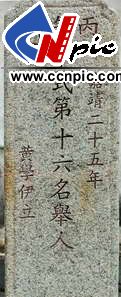 CN
pic
www.ccnpic.com
丙
嘉靖二十五年
式第十六名舉人
黃學伊立